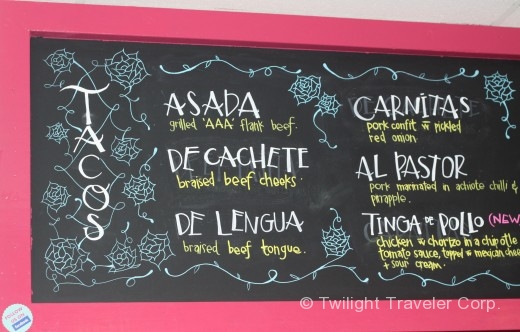 TACOS
ASADA
grilled 'AAA' flank beef.
DE CACHETE
braised beef cheeks.
DE LENGUA
braised beef tongue.
CARNITAS
pork confit w pickled
red onion.
AL PASTOR
pork marinated in achiote chilli &
pinapple.
TINGA DE POLLO (NEW
chicken w chorizo in a chipotle
tomato sauce, topped w mexican chee
+ sour cream.
FOLLOW
US ON
© Twilight Traveler Corp.